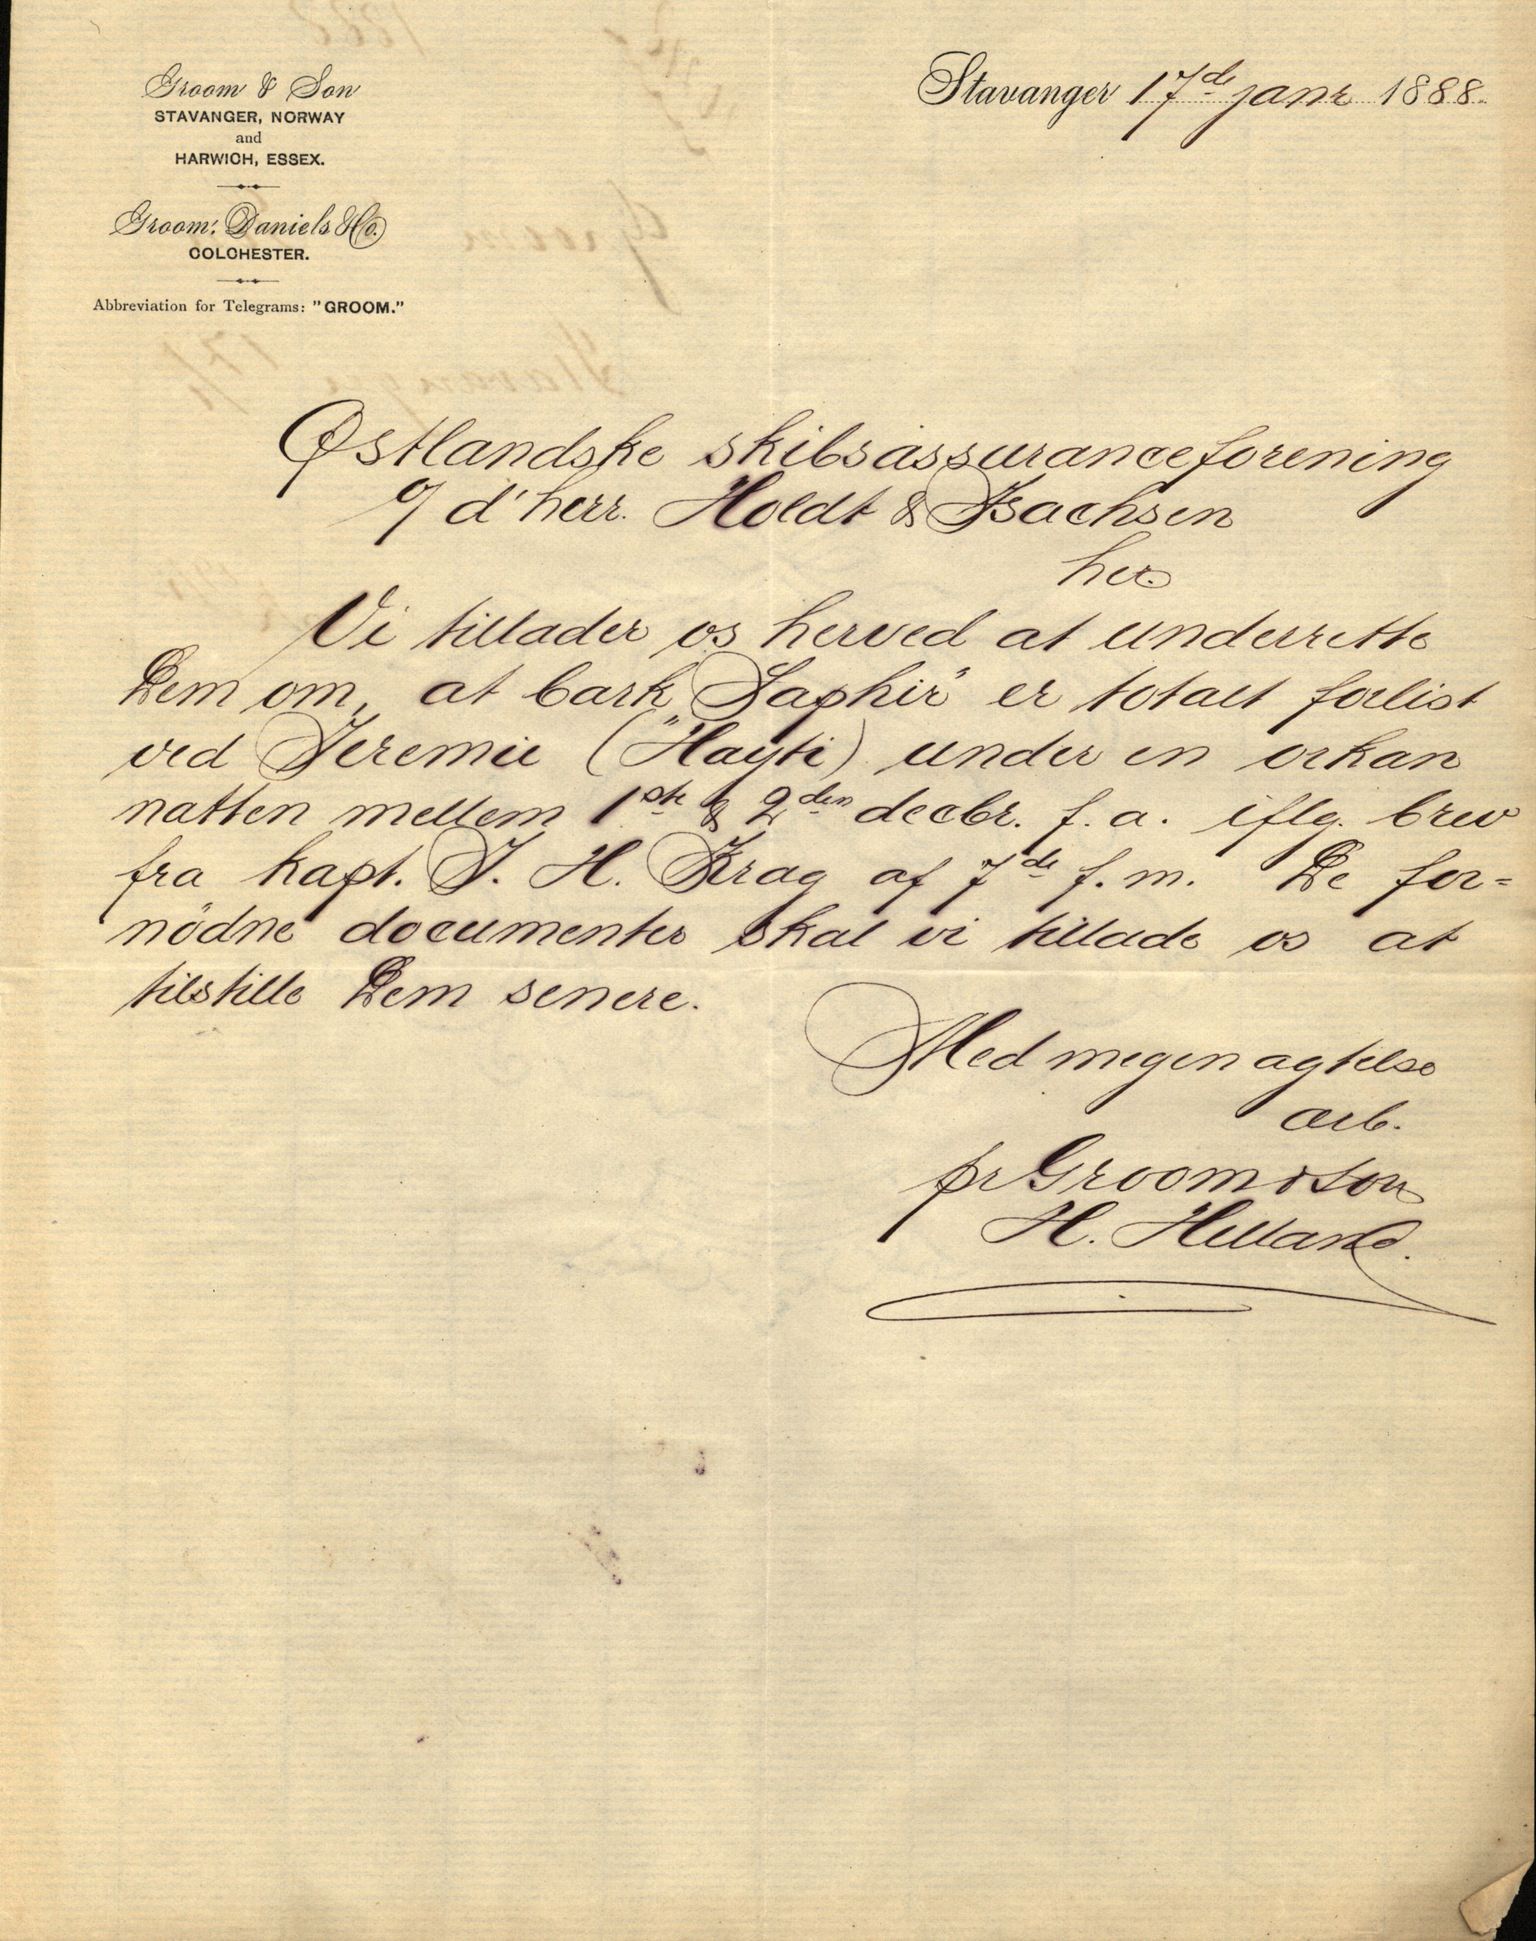 Groom & Son
STAVANGER, NORWAY
and
HARWICH, ESSEX.
Groom, Daniels & Co.
COLCHESTER.
Abbreviation for Telegrams: "GROOM."
Stavanger 17de janr 1888.
Østlandske skibsassuranceforening
c/ d'herr. Holdt & Isachsen
her.
Vi tillader os herved at underrette
Dem om, at bark "Saphir" er totalt forlist
ved Jeremie (Hayti) under en orkan
natten mellem 1ste & 2den decbr. f. a. iflg. brev
fra kapt. J. H. Krag af 7de f. m. De for-
nödne documenter skal vi tillade os at
tilstille Dem senere.
Med megen agtelse
ærb.
pr Groom & Son
H. Helland.